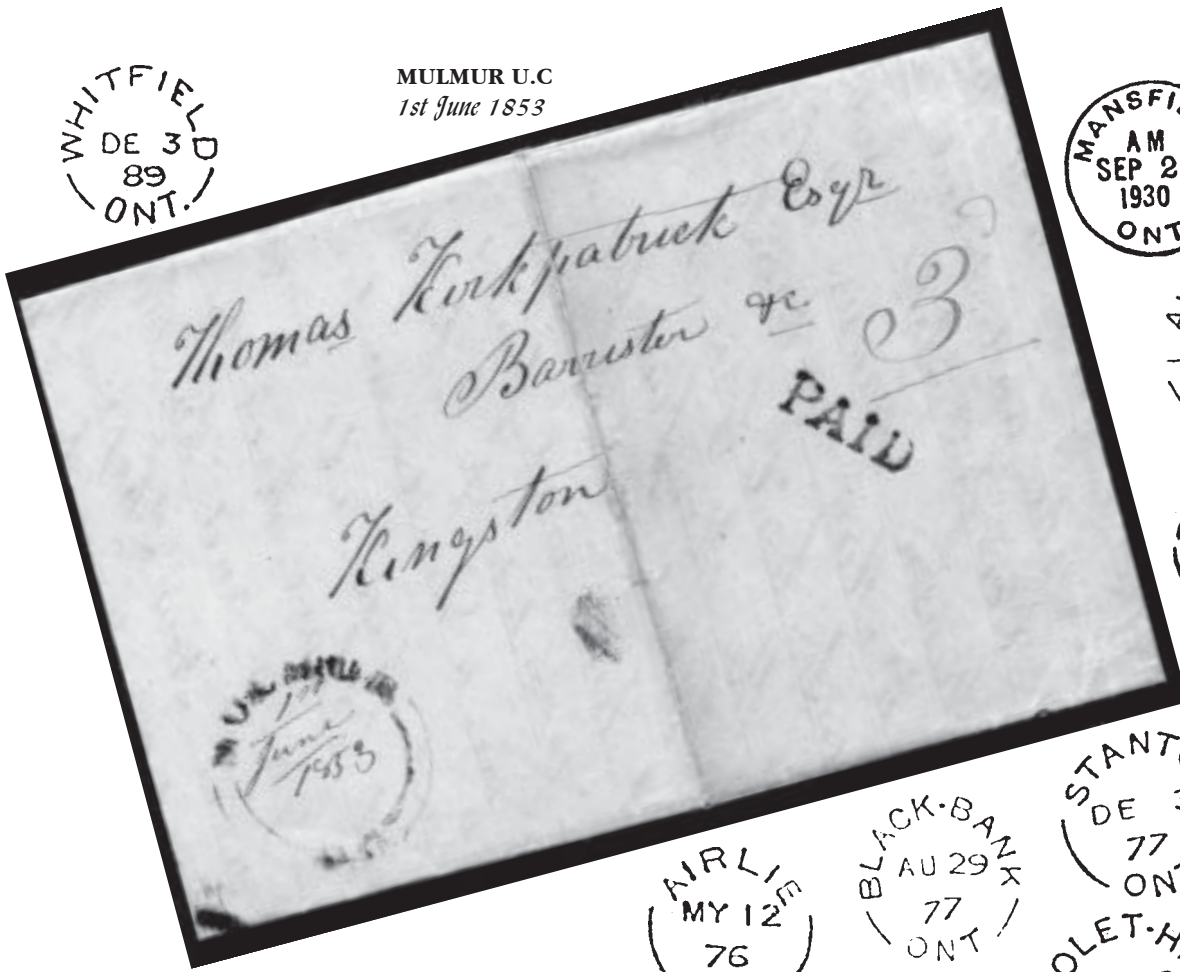 MULMUR U.C
1st June 1853
WHITFIELD
DE 3
89
ONT.
MANSFI
AM
SEP 2
1930
ONT
Thomas Kirkpatrick Esqr
Barrister &c
3
PAID
Kingston
MULMUR
1st
June
1853
AIRLIE
MY 12
76
BLACK-BANK
AU 29
77
ONT
STANT
DE 3
77
ON
OLET-H